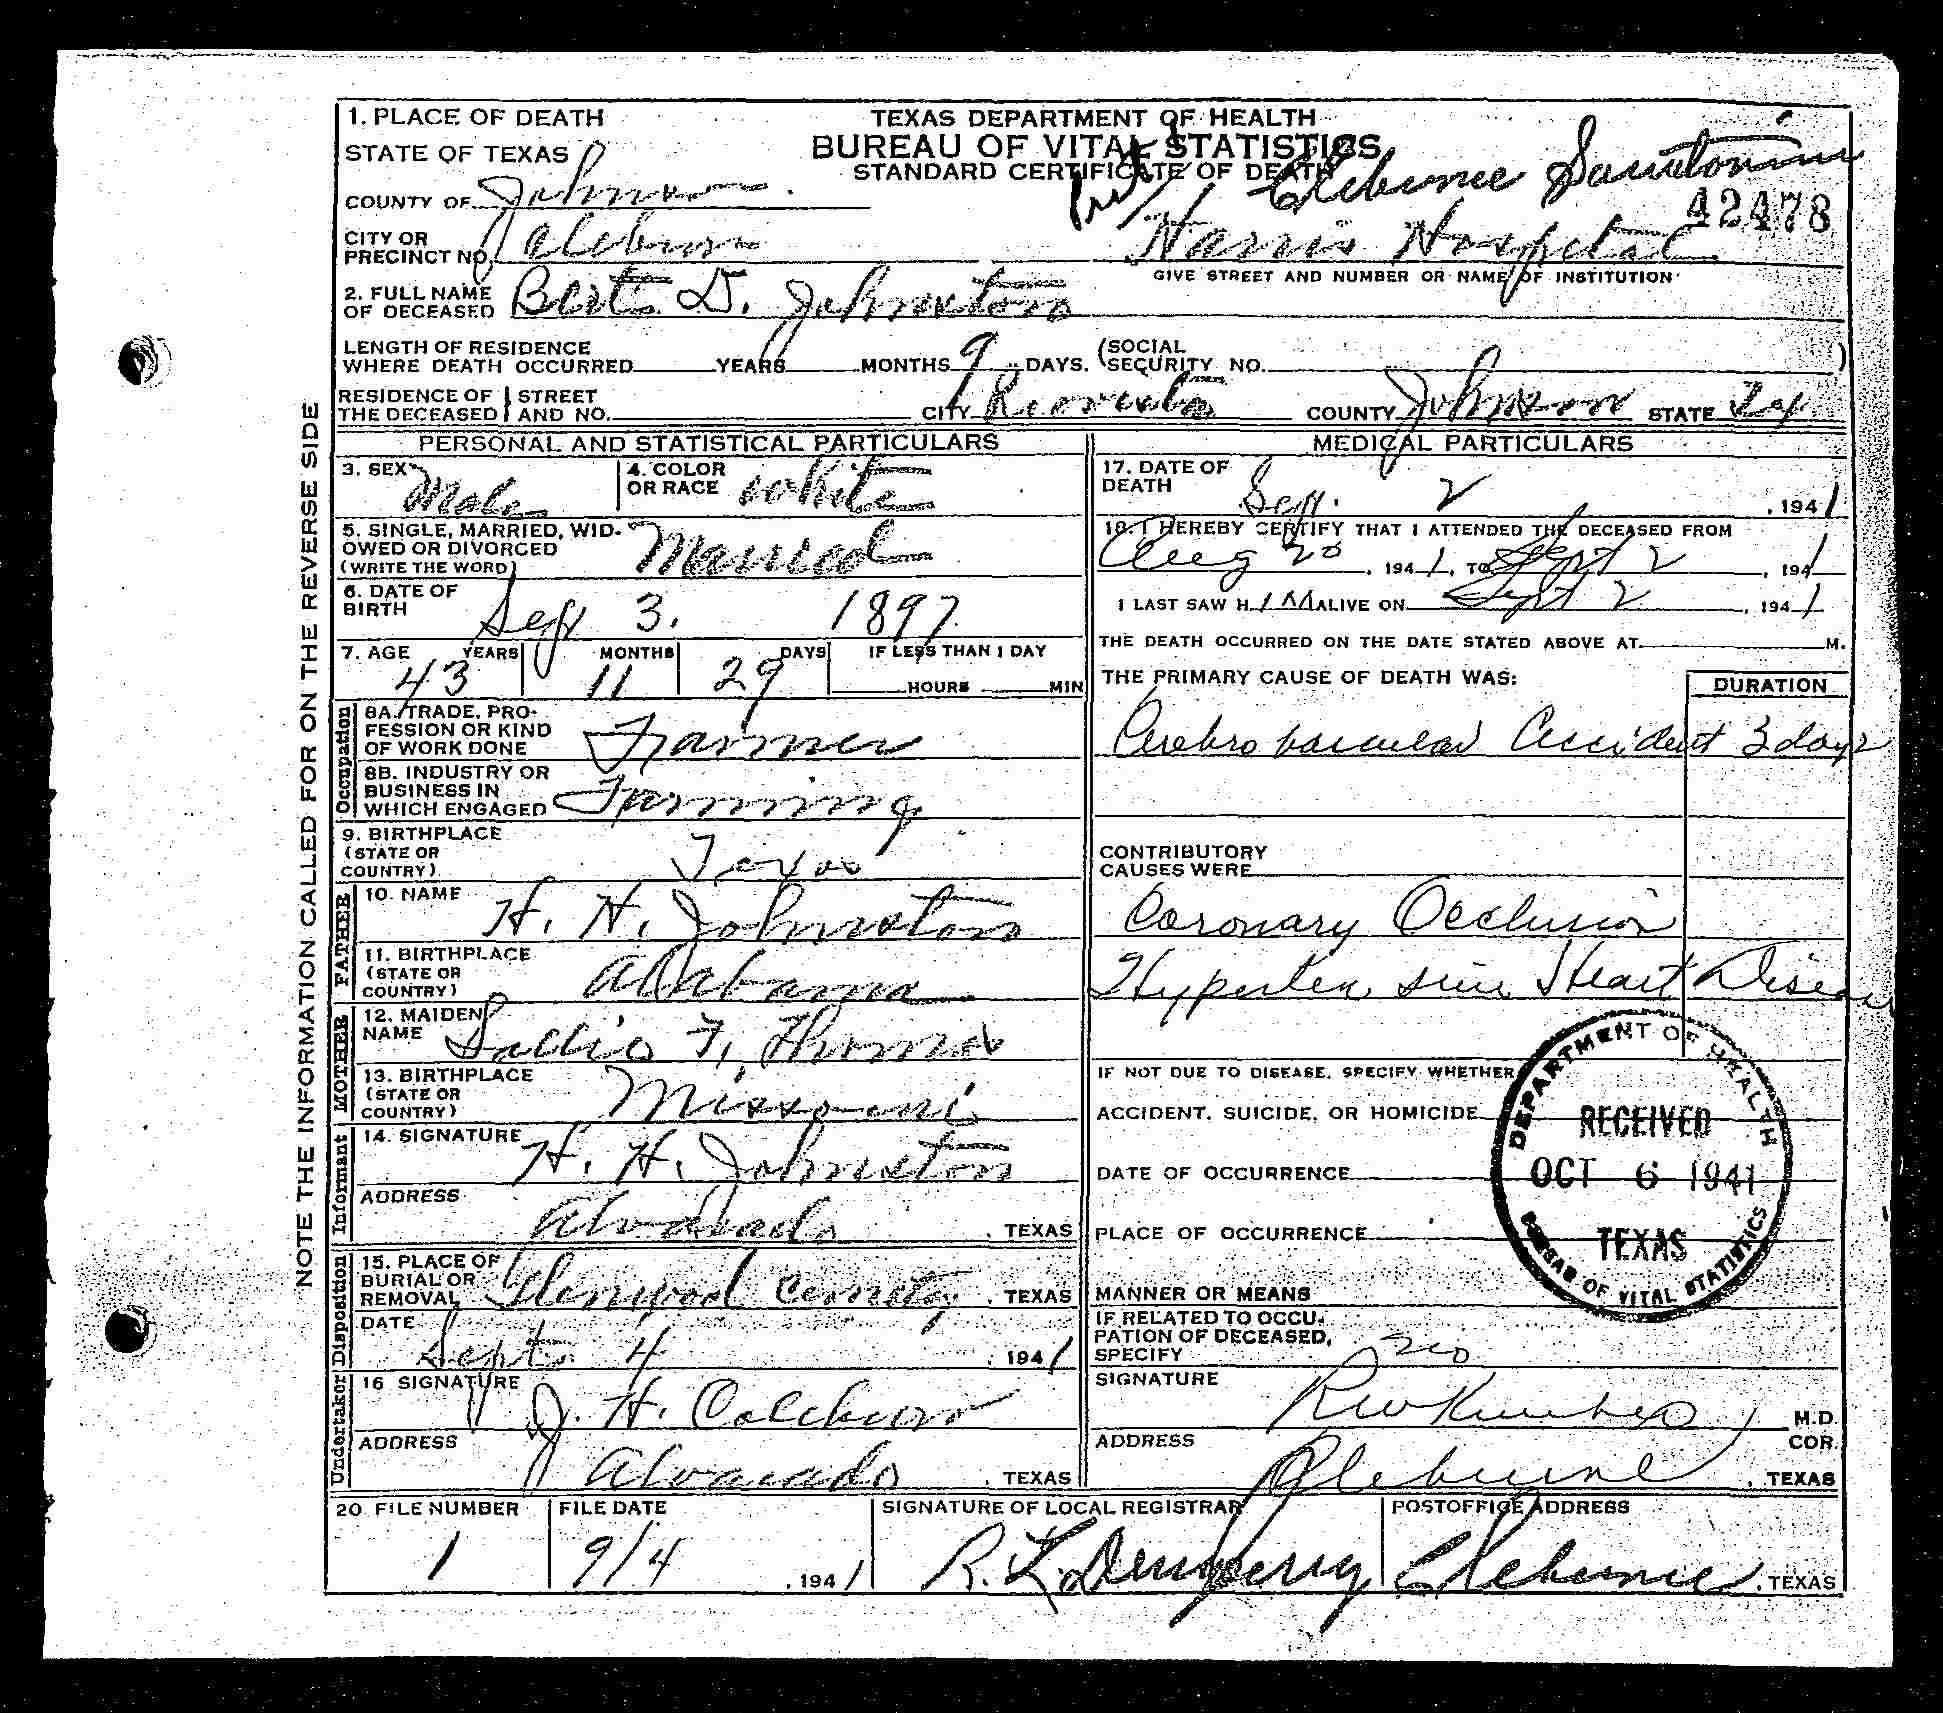 1. PLACE OF DEATH
STATE OF TEXAS
TEXAS DEPARTMENT OF HEALTH
BUREAU OF VITAL STATISTICS
STANDARD CERTIFICATE OF DEATH
Cleburne
42478
COUNTY OF Johnson
CITY OR PRECINCT NO. Cleburne
Harris Hospital
GIVE STREET AND NUMBER OR NAME OF INSTITUTION
2. FULL NAME OF DECEASED Bert D. Johnston
LENGTH OF RESIDENCE WHERE DEATH OCCURRED YEARS MONTHS 9 DAYS. (SOCIAL SECURITY NO. )
RESIDENCE OF THE DECEASED STREET AND NO. CITY COUNTY Johnson STATE Tex
PERSONAL AND STATISTICAL PARTICULARS
3. SEX Male
4. COLOR OR RACE White
5. SINGLE, MARRIED, WIDOWED OR DIVORCED (WRITE THE WORD) Married
6. DATE OF BIRTH Sep 3. 1897
7. AGE YEARS 43 MONTHS 11 DAYS 29 IF LESS THAN 1 DAY HOURS MIN
Occupation
8A. TRADE, PROFESSION OR KIND OF WORK DONE Farmer
8B. INDUSTRY OR BUSINESS IN WHICH ENGAGED Farming
9. BIRTHPLACE (STATE OR COUNTRY) Texas
FATHER
10. NAME H. H. Johnston
11. BIRTHPLACE (STATE OR COUNTRY) Alabama
MOTHER
12. MAIDEN NAME Sallie F. Thomas
13. BIRTHPLACE (STATE OR COUNTRY) Missouri
Informant
14. SIGNATURE H. H. Johnston
ADDRESS Alvarado , TEXAS
Disposition
15. PLACE OF BURIAL OR REMOVAL Glenwood Cemetery , TEXAS
DATE Sept. 4 , 1941
Undertaker
16 SIGNATURE J. H.
ADDRESS Alvarado , TEXAS
MEDICAL PARTICULARS
17. DATE OF DEATH Sep. 2 , 1941
18. I HEREBY CERTIFY THAT I ATTENDED THE DECEASED FROM
Aug 20 , 1941, TO Sept 2 , 1941
I LAST SAW HIM ALIVE ON Sept 2 , 1941
THE DEATH OCCURRED ON THE DATE STATED ABOVE AT M.
THE PRIMARY CAUSE OF DEATH WAS: DURATION
Cerebro vascular Accident 3 days
CONTRIBUTORY CAUSES WERE
Coronary Occlusion
Hypertensive Heart Disease
IF NOT DUE TO DISEASE, SPECIFY WHETHER
ACCIDENT, SUICIDE, OR HOMICIDE
DATE OF OCCURRENCE
PLACE OF OCCURRENCE
MANNER OR MEANS
DEPARTMENT OF HEALTH
RECEIVED
OCT 6 1941
TEXAS
BUREAU OF VITAL STATISTICS
IF RELATED TO OCCUPATION OF DECEASED, SPECIFY no
SIGNATURE M.D.
COR.
ADDRESS Cleburne , TEXAS
20 FILE NUMBER 1
FILE DATE 9/4 , 1941
SIGNATURE OF LOCAL REGISTRAR
POSTOFFICE ADDRESS Cleburne , TEXAS
NOTE THE INFORMATION CALLED FOR ON THE REVERSE SIDE